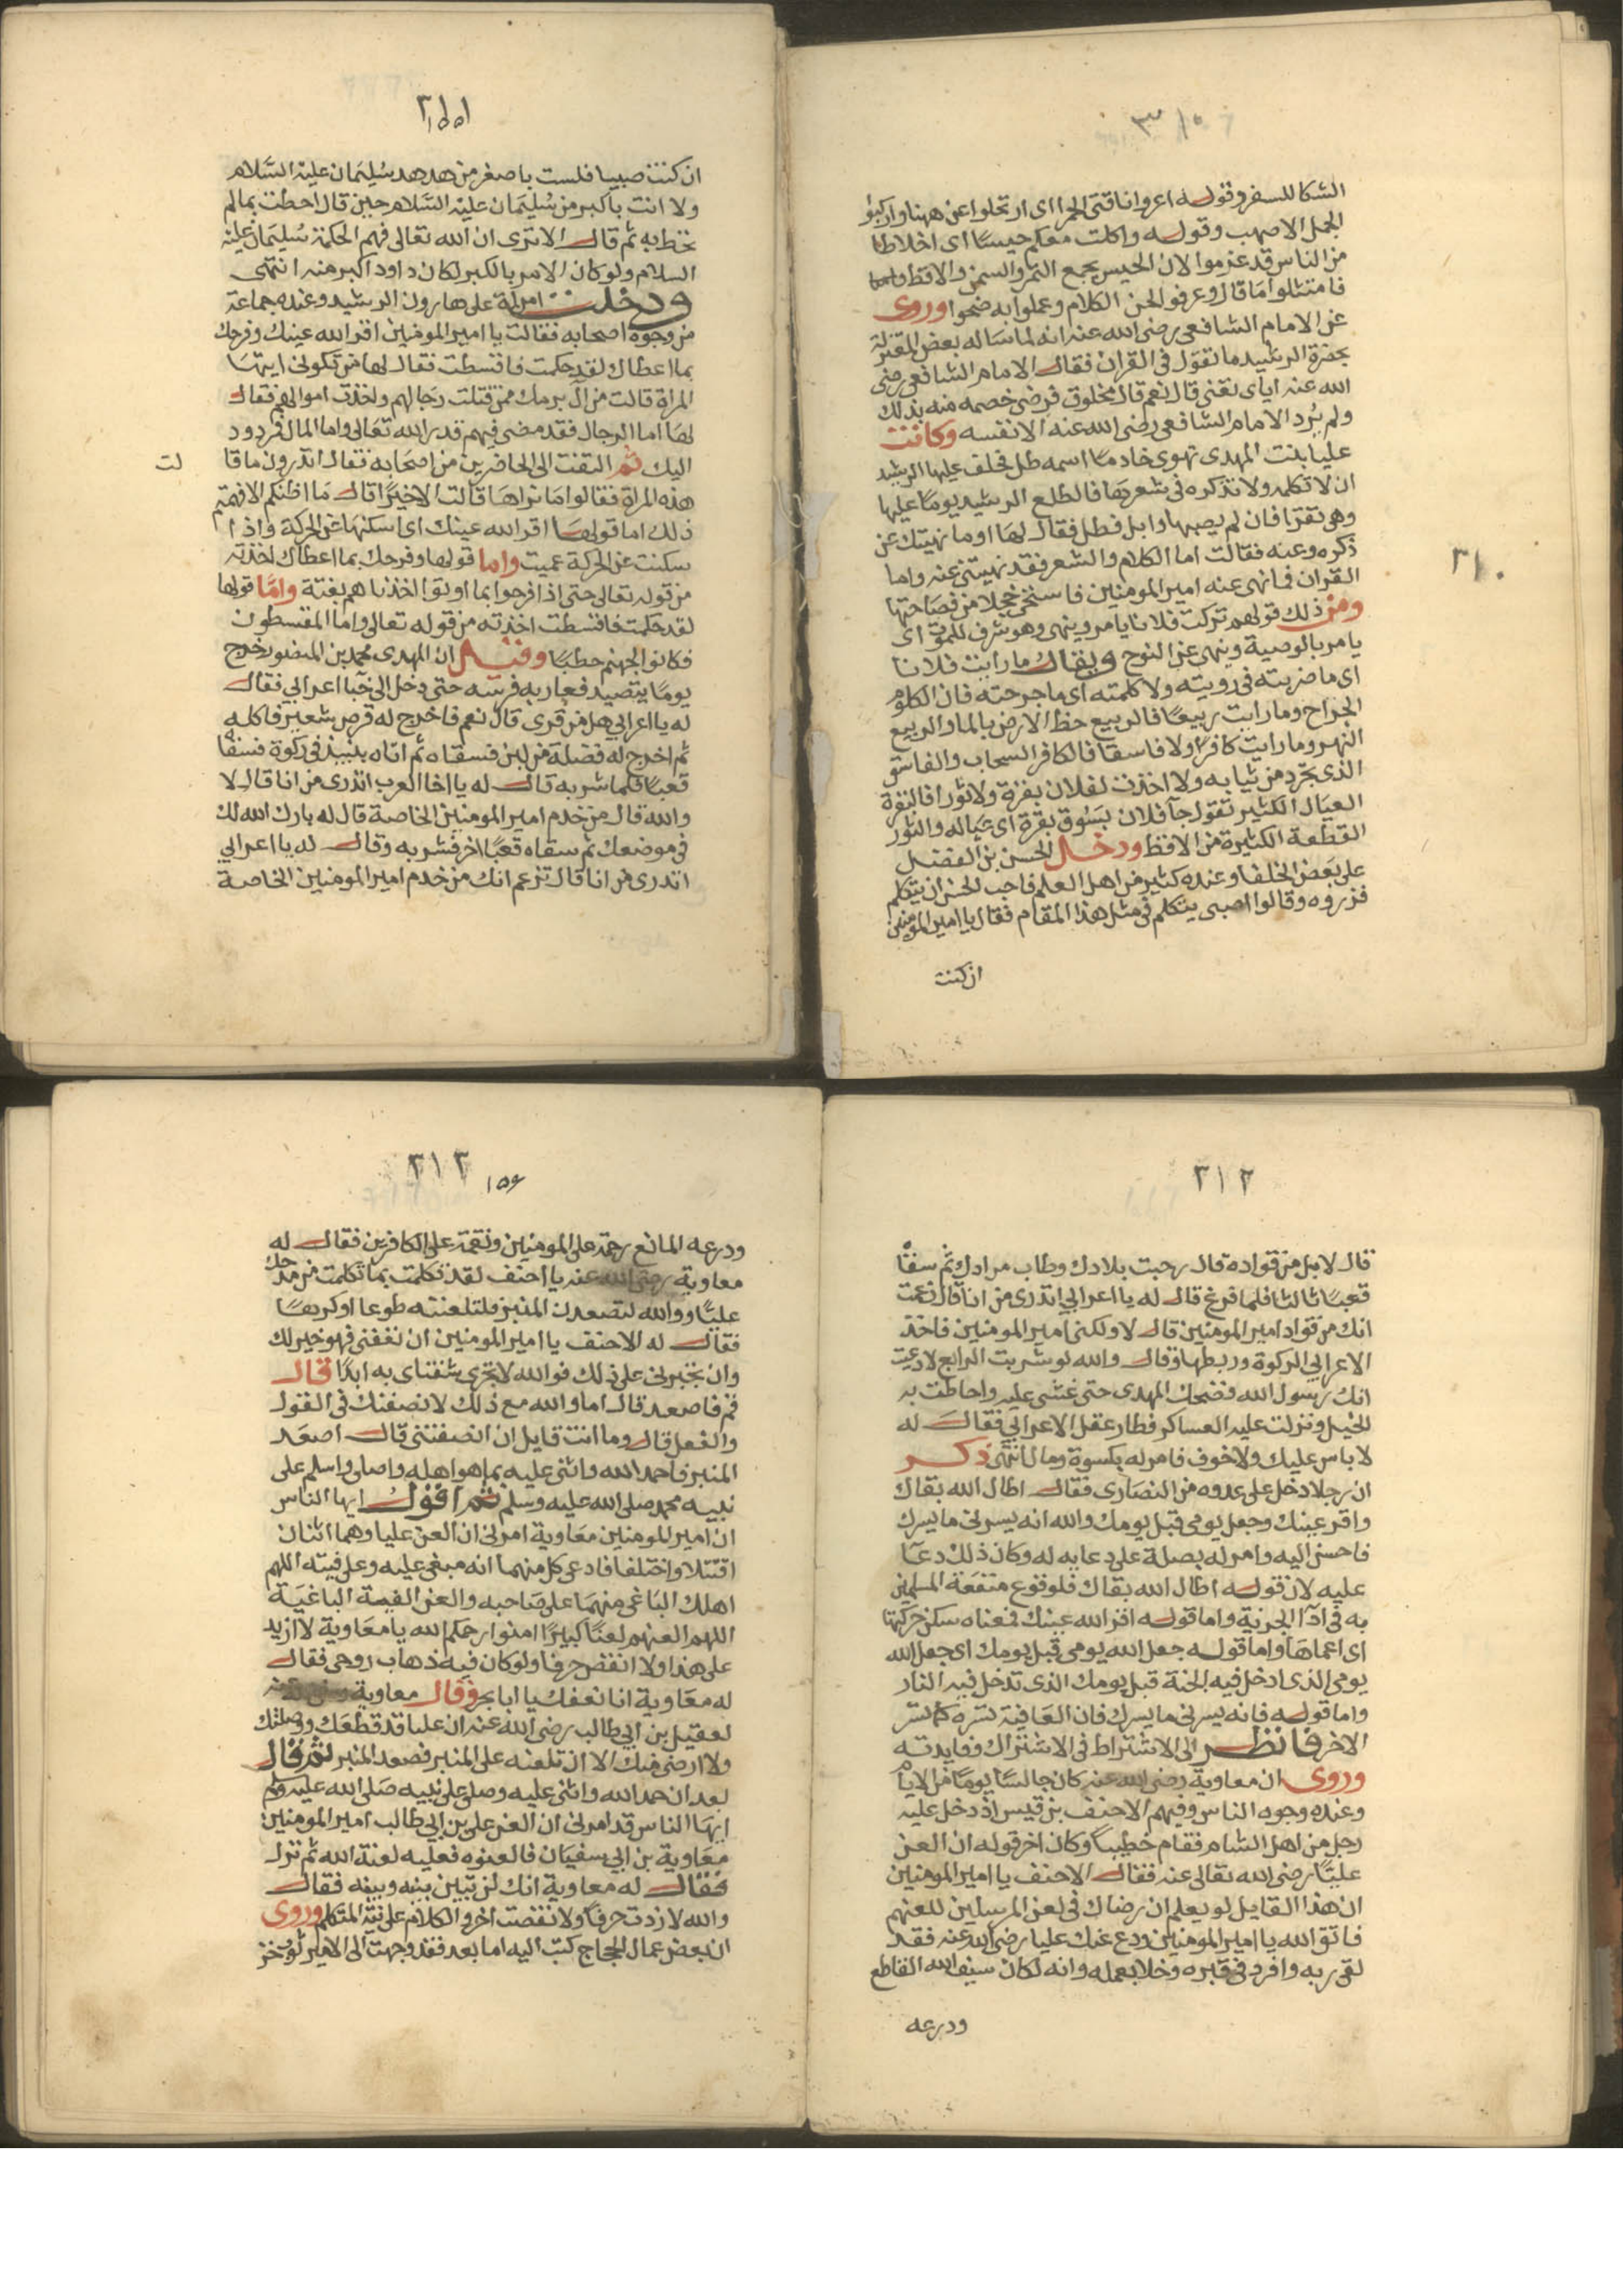 ٣١٠
الشكا للسفر وقوله اعروا ناقتى الحمرا اى ارتحلوا عن ههنا واركبوا
الجمل الاصهب وقوله واكلت معكم حيسا اى اخلاطا
من الناس قد عزموا لان الحيس يجمع التمر والسمن والاقط
فامتثلوا ما قال وعرفوا لحن الكلام وعملوا به ونجوا وروى
عن الامام الشافعى رضى الله عنه انه لما ساله بعض المعتزلة
بحضرة الرشيد ما تقول فى القران فقال الامام الشافعى رضى
الله عنه اياى تعنى قال نعم قال مخلوق فرضى خصمه منه بذلك
ولم يرد الامام الشافعى رضى الله عنه الا نفسه وكانت
عليا بنت المهدى تهوى خادما اسمه طل فحلف عليها الرشيد
ان لا تكلمه ولا تذكره فى شعرها فاطلع الرشيد يوما عليها
وهى تقرا فان لم يصبها وابل فطل فقال لها او ما نهيتك عن
ذكره وعنه فقالت اما الكلام والشعر فقد نهيتنى عنه واما
القران فما نهى عنه امير المومنين فاستحى خجلا من فصاحتها
ومن ذلك قولهم تركت فلانا يامر وينهى وهو شرف للموت اى
يامر بالوصية وينهى عن النوح ويقال ما رايت فلانا
اى ما ضربته فى رويته ولا كلمته اى ما جرحته فان الكلوم
الجراح وما رايت ربيعا فالربيع حظ الارض بالما والربيع
النهر وما رايت كافرا ولا فاسقا فالكافر السحاب والفاسق
الذى تجرد من ثيابه ولا اخذت لفلان بقرة ولا ثورا فالبقرة
العيال الكثير تقول جا فلان يسوق بقرة اى عياله والثور
القطعة الكثيرة من الاقط ودخل الحسن بن الفضل
على بعض الخلفا وعنده كثير من اهل العلم فاحب الحسن ان يتكلم
فزبروه وقالوا اصبى يتكلم فى مثل هذا المقام فقال يا امير المومنين
ان كنت
٣١٠
٣١١
ان كنت صبيا فلست باصغر من هدهد سليمان عليه السلام
ولا انت باكبر من سليمان عليه السلام حين قال احطت بما لم
تحط به ثم قال الا ترى ان الله تعالى فهم الحكمة سليمان عليه
السلام ولو كان الامر بالكبر لكان داود اكبر منه انتهى
ودخلت امراة على هارون الرشيد وعنده جماعة
من وجوه اصحابه فقالت يا امير المومنين اقر الله عينك وفرحك
بما اعطاك لقد حكمت فاقسطت فقال لها من تكونى ايتها
المراة قالت من ال برمك ممن قتلت رجالهم واخذت اموالهم فقال
لها اما الرجال فقد مضى فيهم قدر الله تعالى واما المال فمردود
اليك ثم التفت الى الحاضرين من اصحابه فقال اتدرون ما قا
لت
هذه المراة فقالوا ما نراها قالت الا خيرا قال ما اظنكم الا فهمتم
ذلك اما قولها اقر الله عينك اى اسكنها عن الحركة واذا
سكنت عن الحركة عميت واما قولها وفرحك بما اعطاك اخذته
من قوله تعالى حتى اذا فرحوا بما اوتوا اخذناهم بغتة واما قولها
لقد حكمت فاقسطت اخذته من قوله تعالى واما القسطون
فكانوا لجهنم حطبا وقيل ان المهدى محمد بن المنصور خرج
يوما يتصيد فعار به فرسه حتى دخل الى خبا اعرابي فقال
له يا اعرابي هل من قرى قال نعم فاخرج له قرص شعير فاكله
ثم اخرج له فضلة من لبن فسقاه ثم اتاه بنبيذ فى ركوة فسقاه
قعبا فلما شربه قال له يا اخا العرب اتدرى من انا قال لا
والله قال من خدم امير المومنين الخاصة قال له بارك الله لك
فى موضعك ثم سقاه قعبا اخر فشربه وقال له يا اعرابي
اتدرى من انا قال تزعم انك من خدم امير المومنين الخاصة
٣١٢
قال لا بل من قواده قال رحبت بلادك وطاب مرادك ثم سقاه
قعبا ثالثا فلما فرغ قال له يا اعرابي اتدرى من انا قال زعمت
انك من قواد امير المومنين قال لا ولكنى امير المومنين فاخذ
الاعرابي الركوة وربطها وقال والله لو شربت الرابع لادعيت
انك رسول الله فضحك المهدى حتى غشى عليه واحاطت به
الخيل ونزلت عليه العساكر فطار عقل الاعرابي فقال له
لا باس عليك ولا خوف فامر له بكسوة ومال انتهى ذكر
ان رجلا دخل على عدوه من النصارى فقال اطال الله بقاك
واقر عينك وجعل يومى قبل يومك والله انه يسرنى ما يسرك
فاحسن اليه وامر له بصلة على دعايه له وكان ذلك دعا
عليه لان قوله اطال الله بقاك فلوقوع منفعة المسلمين
به فى ادا الجزية واما قوله اقر الله عينك فمعناه سكن حركتها
اى اعماها واما قوله جعل الله يومى قبل يومك اى جعل الله
يومى الذى ادخل فيه الجنة قبل يومك الذى تدخل فيه النار
واما قوله فانه يسرنى ما يسرك فان العافية تسره كما تسر
الاخر فانظر الى الاشتراط فى الاشتراك وفايدته
وروى ان معاوية رضى الله عنه كان جالسا يوما من الايام
وعنده وجوه الناس وفيهم الاحنف بن قيس اذ دخل عليه
رجل من اهل الشام فقام خطيبا وكان اخر قوله ان العن
عليا رضى الله تعالى عنه فقال الاحنف يا امير المومنين
ان هذا القايل لو يعلم ان رضاك فى لعن المرسلين للعنهم
فاتق الله يا امير المومنين ودع عنك عليا رضى الله عنه فقد
لقى ربه وافرد فى قبره وخلا بعمله وانه لكان سيف الله القاطع
ودرعه
٣١٣
١٥٦
ودرعه المانع رحمة على المومنين ونقمة على الكافرين فقال له
معاوية رضى الله عنه يا احنف لقد تكلمت بما تكلمت من مدحك
عليا ووالله لتصعدن المنبر فلتلعنته طوعا او كرها
فقال له الاحنف يا امير المومنين ان تعفنى فهو خير لك
وان تجبرنى على ذلك فوالله لا تجرى شفتاى به ابدا قال
قم فاصعد قال اما والله مع ذلك لانصفنك فى القول
والفعل قال وما انت قايل ان انصفتنى قال اصعد
المنبر فاحمد الله واثنى عليه بما هو اهله واصلى واسلم على
نبيه محمد صلى الله عليه وسلم ثم اقول ايها الناس
ان امير المومنين معاوية امرنى ان العن عليا وهما اثنان
اقتتلا واختلفا فادعى كل منهما انه مبغى عليه وعلى فيته اللهم
اهلك الباغى منهما على صاحبه والعن الفية الباغية
اللهم العنهم لعنا كبيرا امنوا رحمكم الله يا معاوية لا ازيد
على هذا ولا انقض حرفا ولو كان فيه ذهاب روحى فقال
له معاوية انا نعفك يا ابا بحر وقال معاوية
لعقيل بن ابي طالب رضى الله عنه ان عليا قد قطعك ووصلتك
ولا ارضى منك الا ان تلعنه على المنبر فصعد المنبر ثم قال
بعد ان حمد الله واثنى عليه وصلى على نبيه صلى الله عليه وسلم
ايها الناس قد امرنى ان العن على بن ابي طالب امير المومنين
معاوية بن ابي سفيان فالعنوه فعليه لعنة الله ثم نزل
فقال له معاوية انك لن تبين بينه وبينه فقال
والله لا زدت حرفا ولا نقصت اخر والكلام على نية المتكلم وروى
ان بعض عمال الحجاج كتب اليه اما بعد فقد وجهت الى الامير ثوب خز